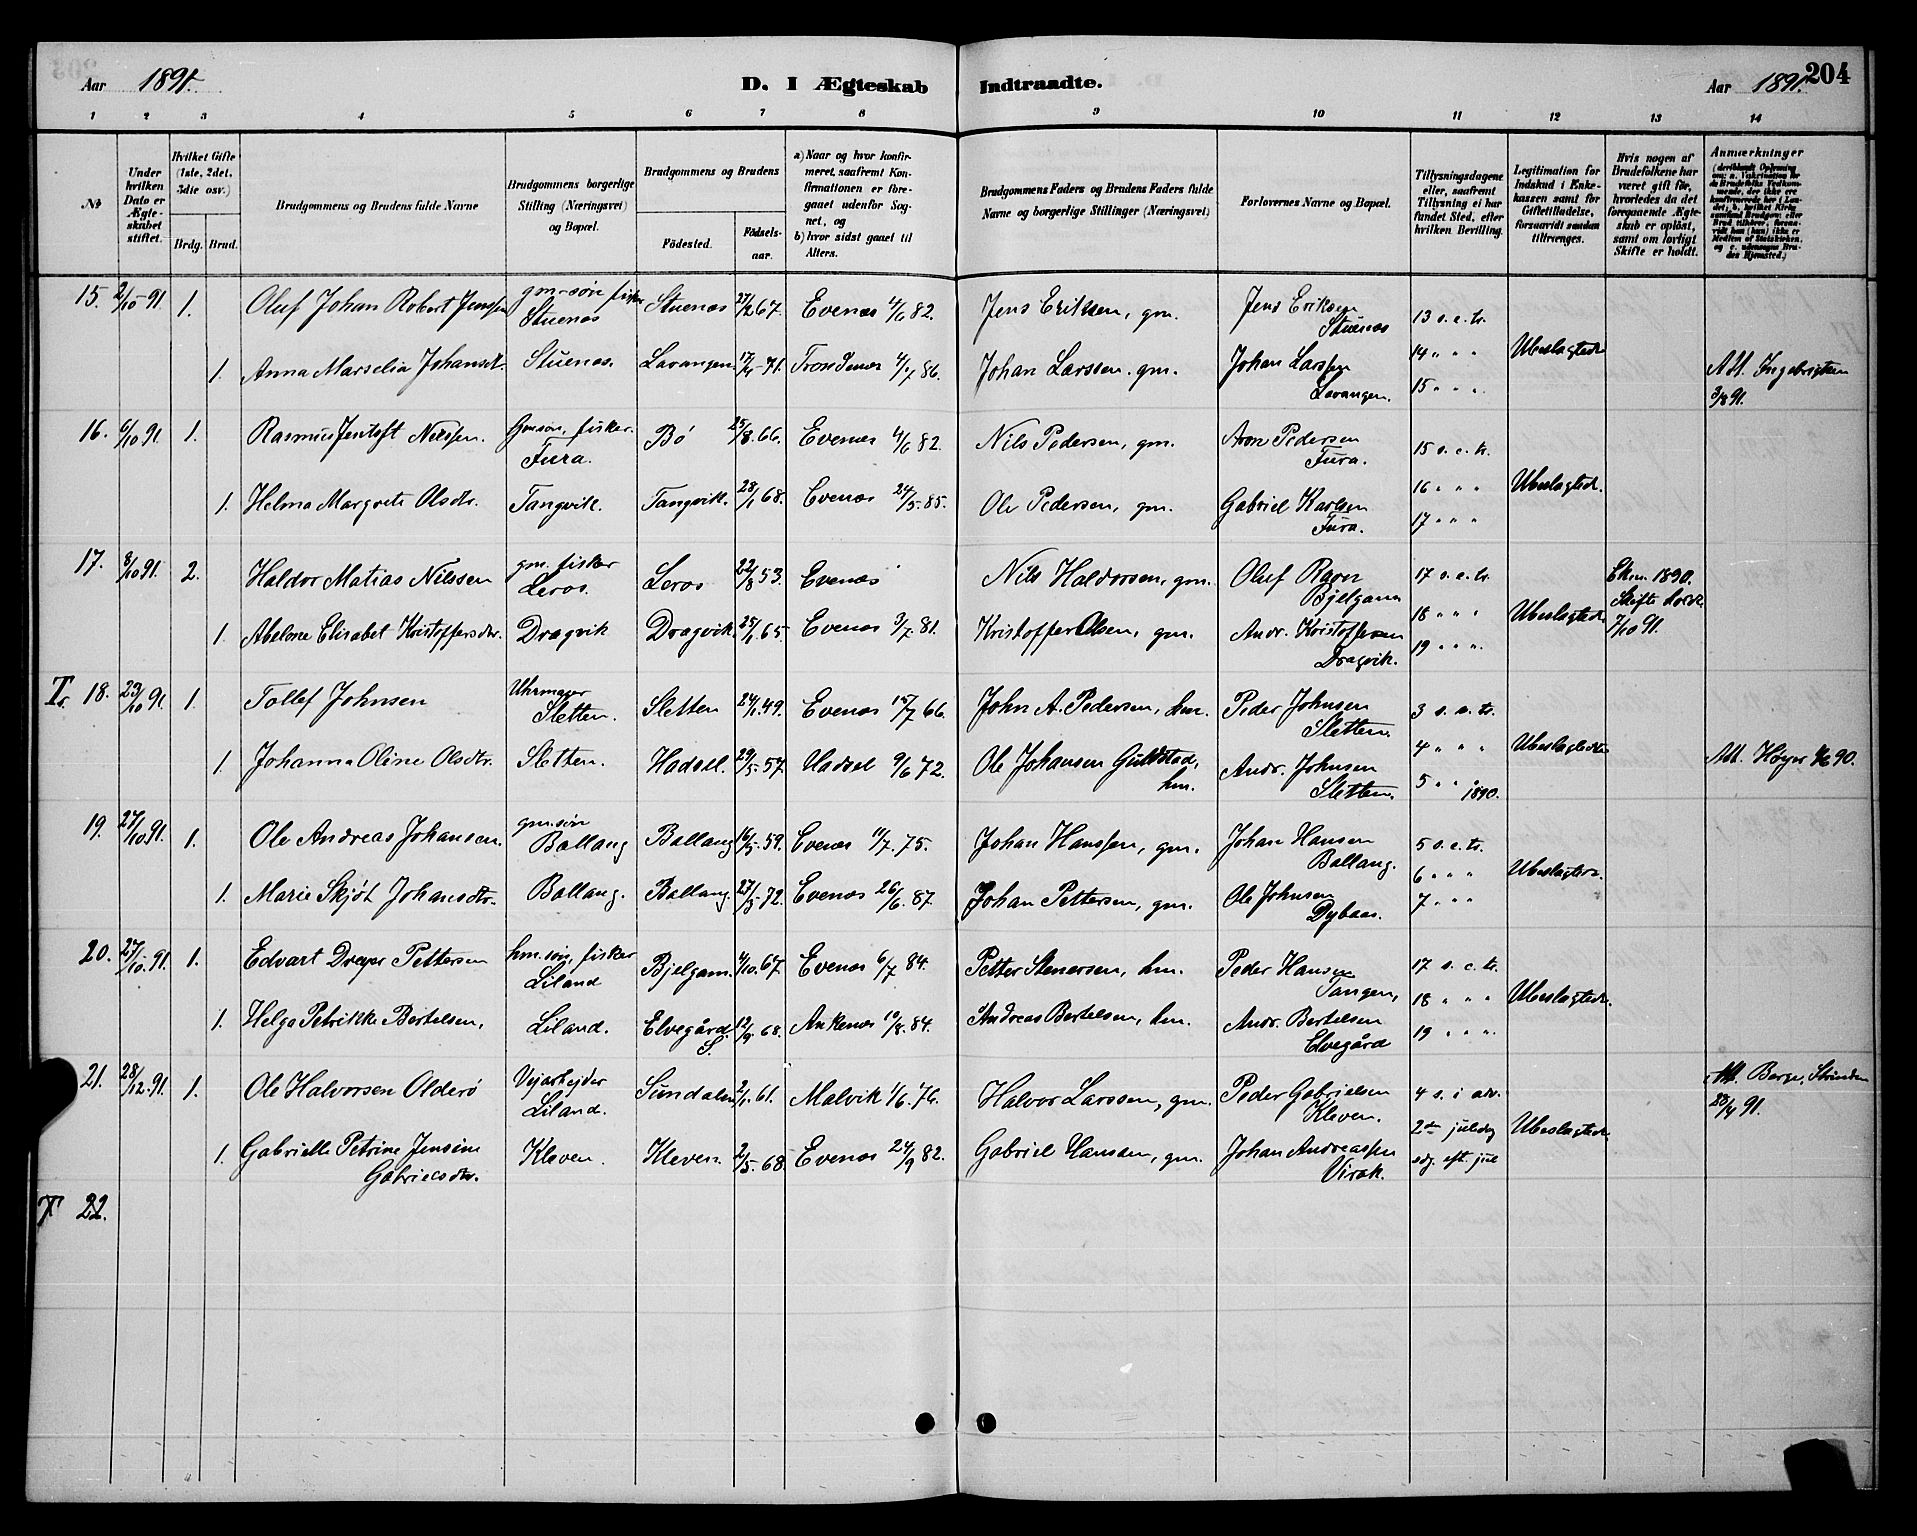 Aar 1891. D. I Ægteskab Indtraadte. Aar 1891. 204
1 2 3 4 5 6 7 8 9 10 11 12 13 14
№
Under hvilken Dato er Ægteskabet stiftet.
Hvilket Gifte (1ste, 2det, 3die osv.)
Brdg. Brud.
Brudgommens og Brudens fulde Navne
Brudgommens borgerlige Stilling (Næringsvei) og Bopæl.
Brudgommens og Brudens
Fødested. Fødselsaar.
a) Naar og hvor konfirmeret, saafremt Konfirmationen er foregaaet udenfor Sognet, og
b) hvor sidst gaaet til Alters.
Brudgommens Faders og Brudens Faders fulde Navne og borgerlige Stillinger (Næringsvei)
Forlovernes Navne og Bopæl.
Tillysningsdagene eller, saafremt Tillysning ei har fundet Sted, efter hvilken Bevilling.
Legitimation for Indskud i Enkekassen samt for Giftetilladelse, forsaavidt saadan tiltrænges.
Hvis nogen af Brudefolkene har været gift før, hvorledes da det foregaaende Ægteskab er opløst, samt om lovligt Skifte er holdt.
Anmærkninger
15. 2/10 91 1. Oluf Johan Robert Jenssen gm.søn fisker Stuenes Stuenes 27/2 67. Evenes 4/6 82. Jens Eriksen, gm. Jens Eriksen Stuenes 13 s. e. tr.
1. Anna Marselia Johansdtr. Stuenes. Lavangen. 17/4 71. Trondenes 4/7 86. Johan Larssen. gm. Johan Larssen Lavangen. 14 " " " 15 " " Ubeslægtede Att. Ingebrigtsen 3/8 91.
16. 6/10 91 1. Rasmus Jentoft Nilssen. Gmsøn, fisker. Fura. Bø 25/8. 66. Evenes 4/6 82. Nils Pedersen, gm. Aron Pedersen Fura. 15 s. e. tr.
1. Helma Margrete Olsdtr. Tangvik. Tangvik. 28/1 68. Evenes 24/5. 85. Ole Pedersen, gm. Gabriel Karlsen Fura. 16 " " 17 " " Ubeslægtede.
17. 8/10 91. 2. Haldor Matias Nilssen gm. fisker Leros. Leros 22/8 53. Evenes Nils Haldorsen, gm. Oluf Ravn Bjelgam 17 s. e. tr. Ekm. 1890. Skifte
1. Abelone Elisabet Kristoffersdtr. Dragvik Dragvik. 25/1 65. Evenes 3/7. 81. Kristoffer Olsen, gm. Andr. Kristoffersen Dragvik. 18 " " " 19 " " " Ubeslægtede 7/10 91.
Tr. 18. 23/10 91 1. Tollef Johnsen Uhrmager Sletten. Sletten 24/1. 49. Evenes 15/7 66. John A. Pedersen, hm. Peder Johnsen Sletten. 3 s. e. tr.
1. Johanna Oline Olsdtr. Sletten. Hadsel. 29/5. 57. Hadsel 9/6 72. Ole Johansen Guldstad, hm. Andr. Johnsen Sletten. 4 " " " 5 " " 1890. Ubeslægtede Att. Høyer 90.
19. 27/10 91. 1. Ole Andreas Johansen. gm.søn Ballang Ballang 16/5. 59. Evenes 11/7. 75. Johan Hanssen, gm. Johan Hansen Ballang. 5 s. e. tr.
1. Marie Skjøt Johansdtr. Ballang. Ballang. 27/3. 72. Evenes 26/6. 87. Johan Pettersen, gm. Ole Johnsen Dybaas. 6 " " " 7 " " Ubeslægtede.
20. 27/10. 91 1. Edvart Dreyer Pettersen hm.søn, fisker Liland Bjelgam. 4/10. 67. Evenes 6/7 84. Petter Stenersen, hm. Peder Hansen Tangen, 17 s. e. tr.
1. Helga Petrikke Bertelsen, Liland. Elvegård S. 12/9. 68. Ankenes 10/8. 84. Andreas Bertelsen, hm. Andr. Bertelsen Elvegård 18 " " " 19 " " " Ubeslægtede.
21. 28/12. 91. 1. Ole Halvorsen Olderø Vejarbejder Liland. Sundalen 2/1. 61. Malvik 1/6. 76. Halvor Larssen, gm. Peder Gabrielsen Kleven. 4 s. i adv. Att. Berge, Strinden 23/4 91.
1. Gabrielle Petrine Jensine Gabrielsdtr. Kleven. Kleven. 2/5. 68. Evenes 24/9 82. Gabriel Hansen, gm. Johan Andreassen Virak. 2den juledag sdg. eft. jul Ubeslægtede
T 22.